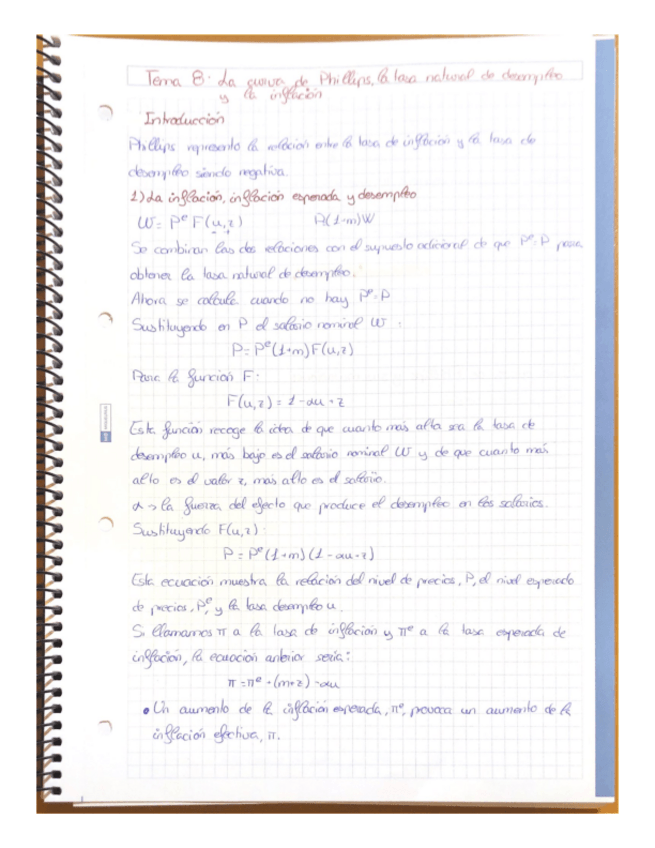 Tema 8: La curva de Phillips, la tasa natural de desempleo
y la inflación
Introducción
Phillips representó la relación entre la tasa de inflación y la tasa de
desempleo siendo negativa.
1) La inflación, inflación esperada y desempleo
W = Pᵉ F(u,z) P(1+m)W
Se combinan las dos relaciones con el supuesto adicional de que Pᵉ=P para
obtener la tasa natural de desempleo.
Ahora se calcula cuando no hay Pᵉ=P
Sustituyendo en P el salario nominal W:
P = Pᵉ(1+m)F(u,z)
Para la función F:
F(u,z) = 1 - αu + z
Esta función recoge la idea de que cuanto más alta sea la tasa de
desempleo u, más bajo es el salario nominal W y de que cuanto más
alto es el valor z, más alto es el salario.
α → la fuerza del efecto que produce el desempleo en los salarios.
Sustituyendo F(u,z):
P = Pᵉ(1+m)(1 - αu + z)
Esta ecuación muestra la relación del nivel de precios, P, el nivel esperado
de precios, Pᵉ, y la tasa desempleo u.
Si llamamos π a la tasa de inflación y πᵉ a la tasa esperada de
inflación, la ecuación anterior sería:
π = πᵉ + (m+z) - αu
• Un aumento de la inflación esperada, πᵉ, provoca un aumento de la
inflación efectiva, π.